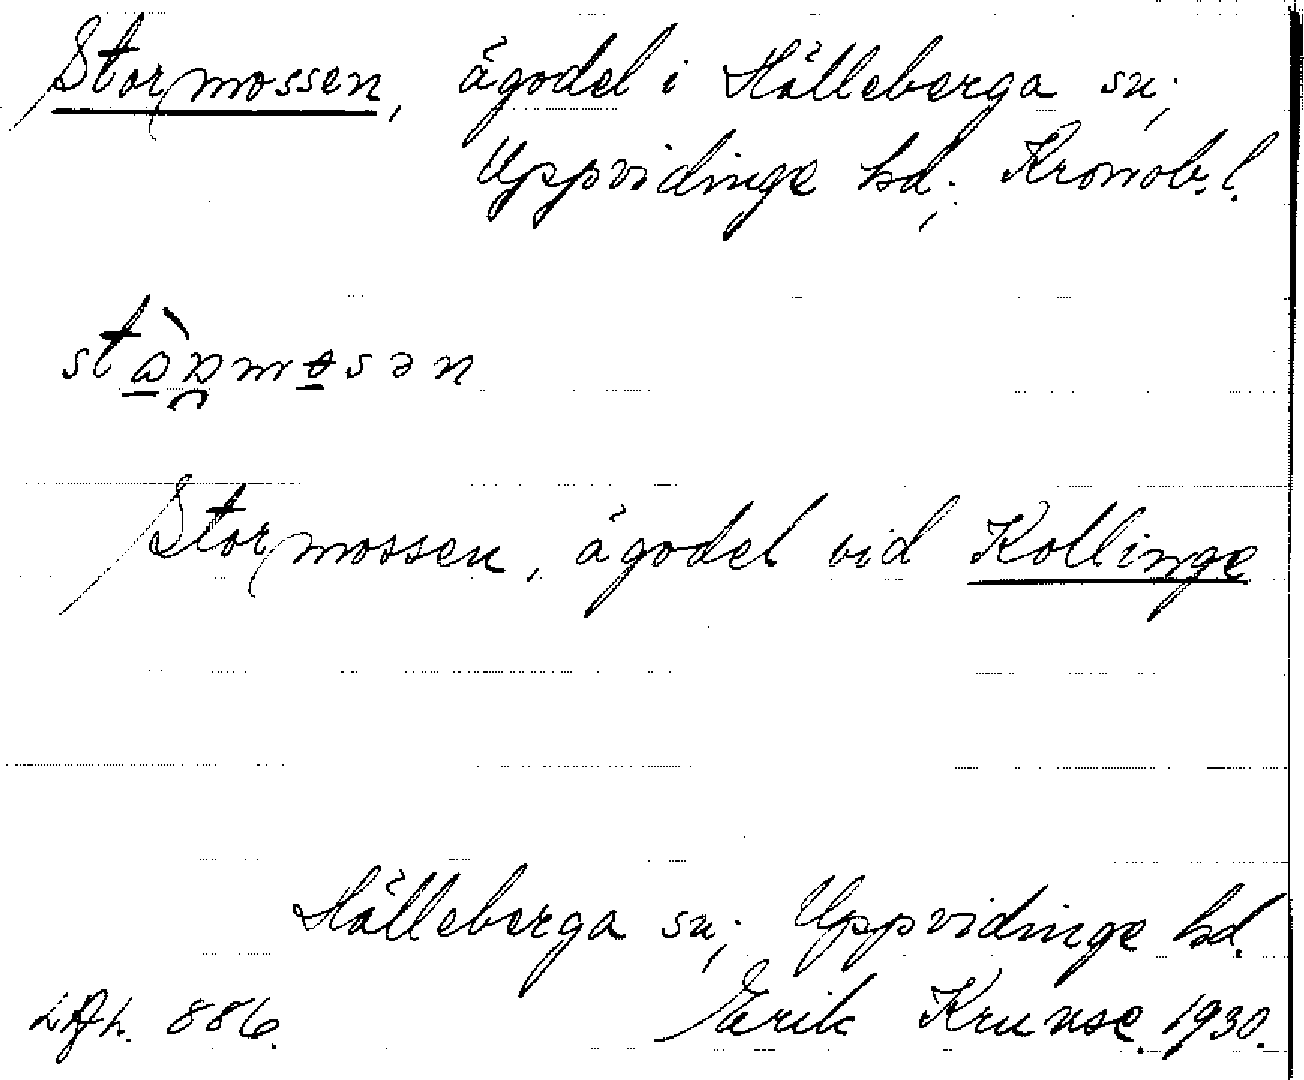 Stormossen, ägodel i Hälleberga sn;
Uppvidinge hd; Kronob. l.
Stormossen, ägodel vid Kollinge
Hälleberga sn; Uppvidinge hd.
886. Erik Krunse. 1930.